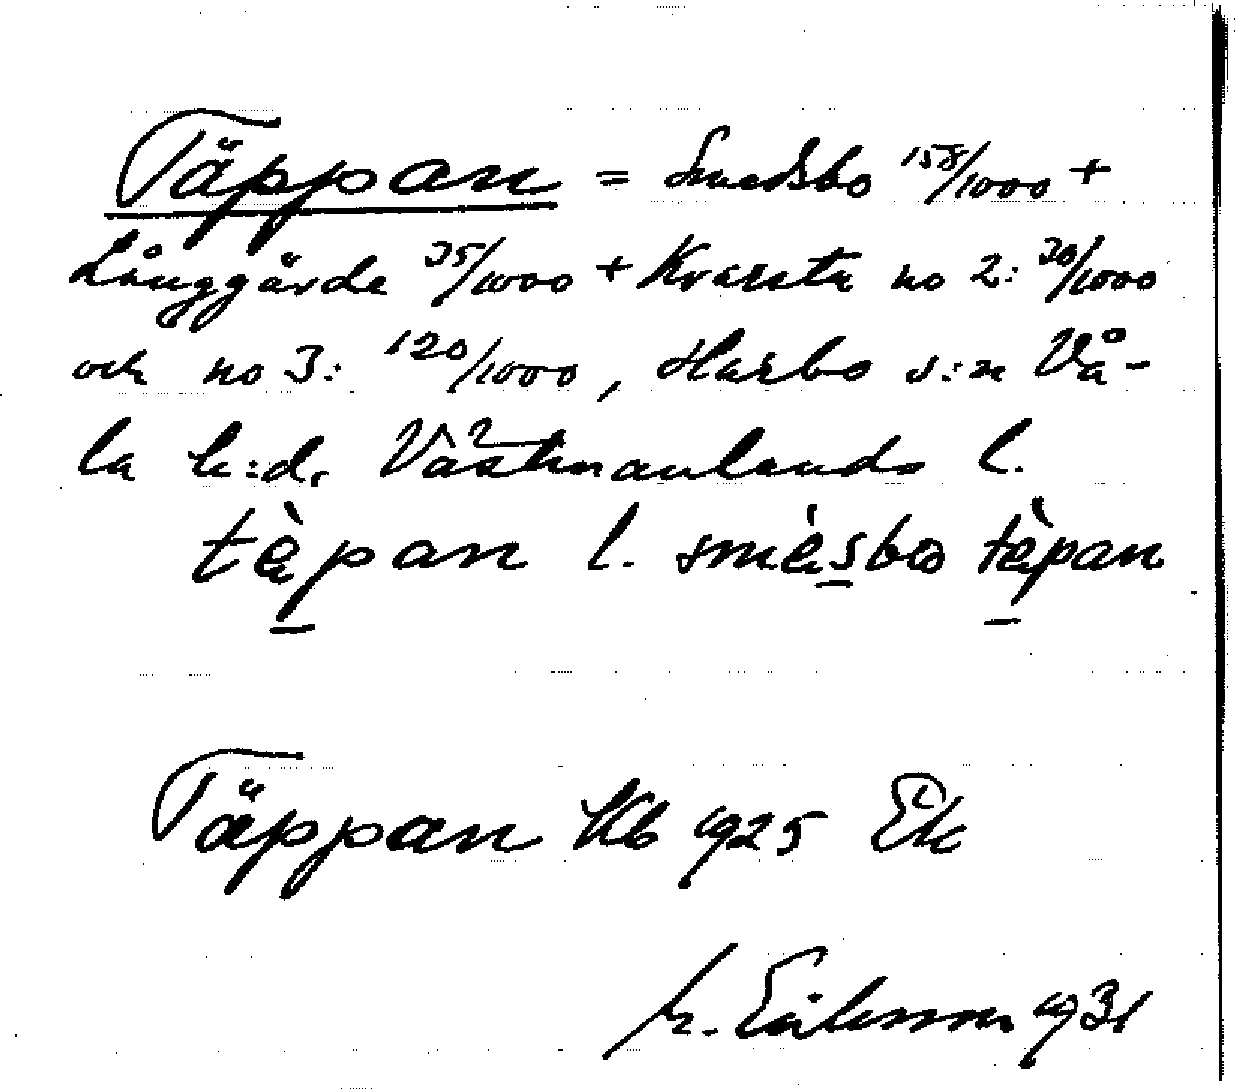 Täppan = Smedsbo 158/1000 +
Långgärde 35/1000 + Kvarsta no 2: 30/1000
och no 3: 120/1000, Harbo s:n Vå-
la h:d, Västmanlands l.
tèpan l. smèsbo tèpan
Täppan Kb 1925 Ek
M. Eriksson 1931